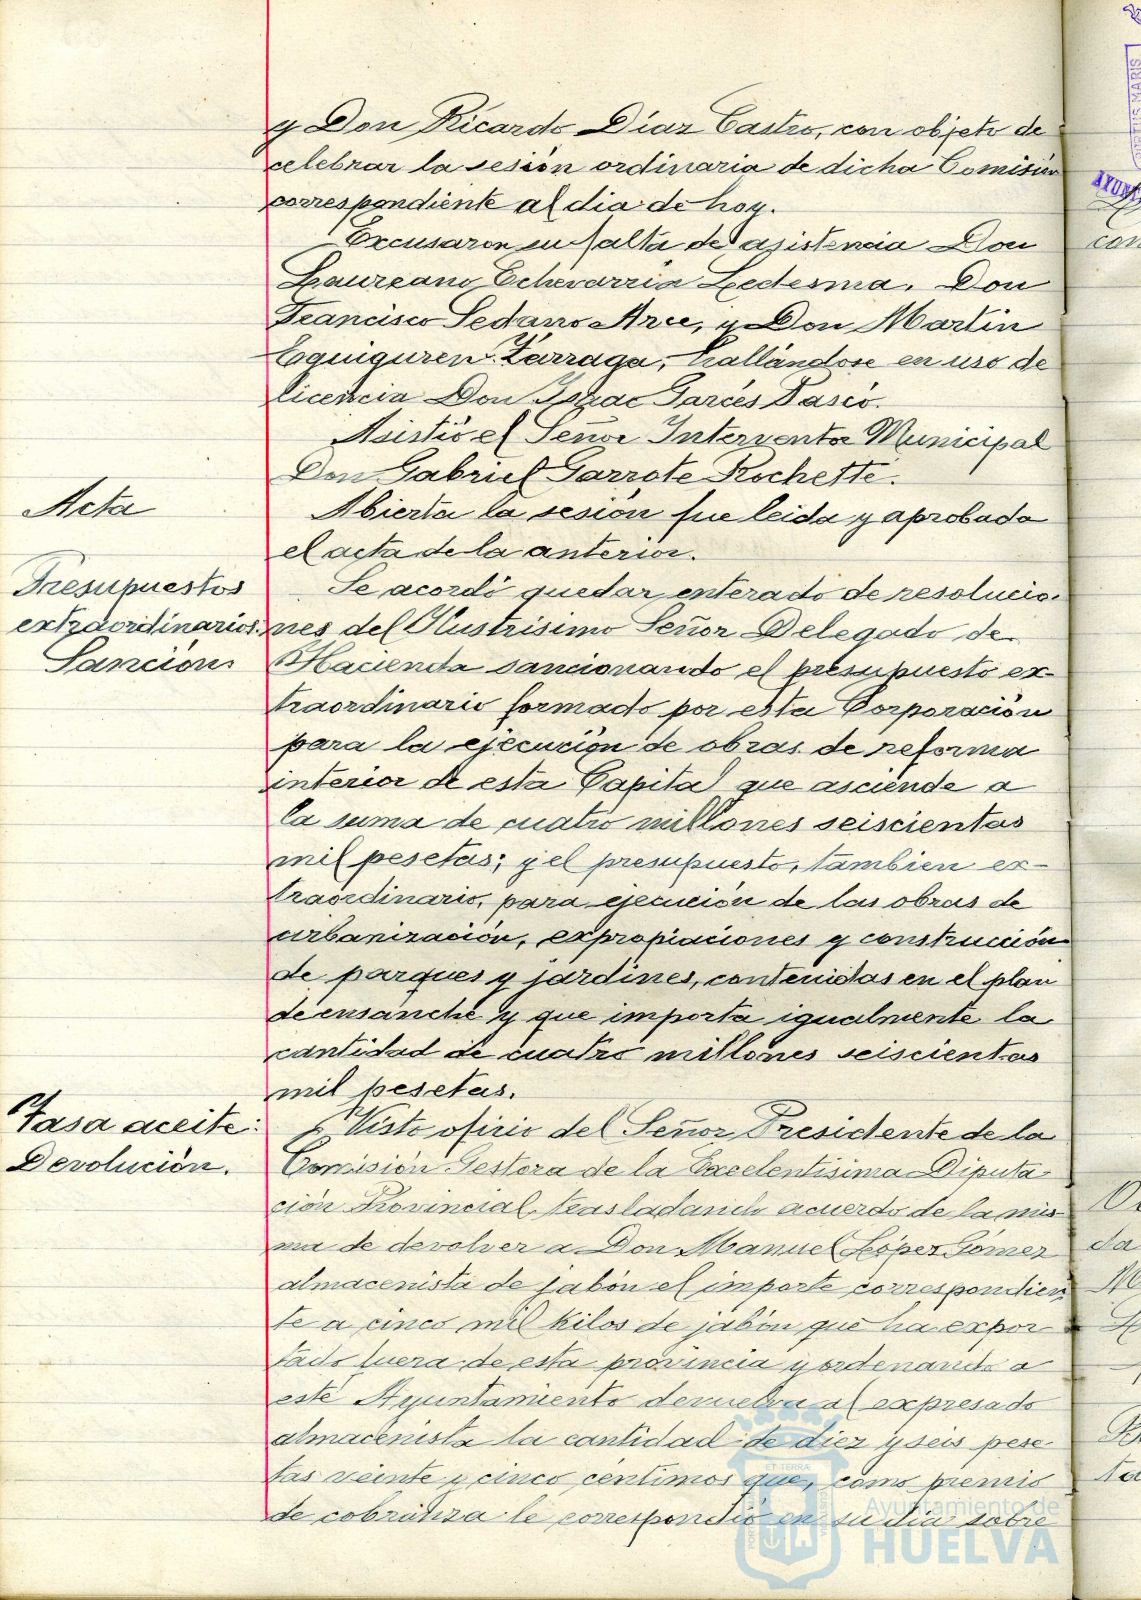 y Don Ricardo Díaz Castro, con objeto de
celebrar la sesión ordinaria de dicha Comisión
correspondiente al dia de hoy.
Excusaron su falta de asistencia Don
Laureano Echevarría Ledesma, Don
Francisco Sedano Arce, y Don Martín
Eguiguren Zárraga, hallándose en uso de
licencia Don Isaac Garcés Pasio.
Asistió el Señor Interventor Municipal
Don Gabriel Garrote Rochette.
Acta
Abierta la sesión fue leida y aprobada
el acta de la anterior.
Presupuestos
extraordinarios.
Sanción.
Se acordó quedar enterado de resolucio-
nes del Ilustrisimo Señor Delegado de
Hacienda sancionando el presupuesto ex-
traordinario formado por esta Corporación
para la ejecución de obras de reforma
interior de esta Capital que asciende a
la suma de cuatro millones seiscientas
mil pesetas; y el presupuesto, tambien ex-
traordinario, para ejecución de las obras de
urbanización, expropiaciones y construcción
de parques y jardines, contenidas en el plan
de ensanche y que importa igualmente la
cantidad de cuatro millones seiscientas
mil pesetas.
Tasa aceite:
Devolución.
Visto oficio del Señor Presidente de la
Comisión Gestora de la Excelentisima Diputa-
ción Provincial, trasladando acuerdo de la mis-
ma de devolver a Don Manuel López Gómez
almacenista de jabón el importe correspondien
te a cinco mil kilos de jabón que ha expor-
tado fuera de esta provincia y ordenando a
este Ayuntamiento devuelva al expresado
almacenista la cantidad de diez y seis pese-
tas veinte y cinco céntimos que, como premio
de cobranza le correspondió en su dia sobre
Ayuntamiento de
HUELVA